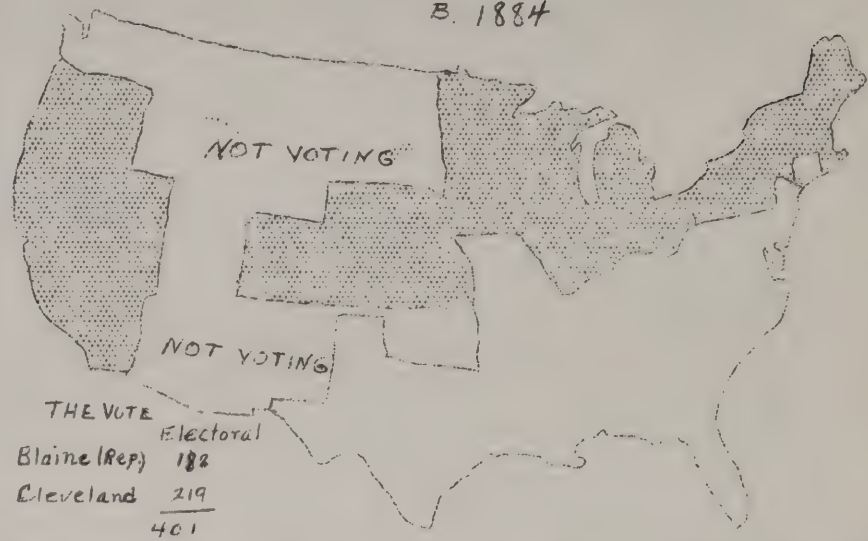 B. 1884
NOT VOTING
NOT VOTING
THE VOTE
Electoral
Blaine (Rep.) 182
Cleveland 219
401